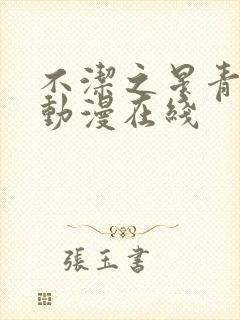 不潔之星青
動漫在綫
張玉書